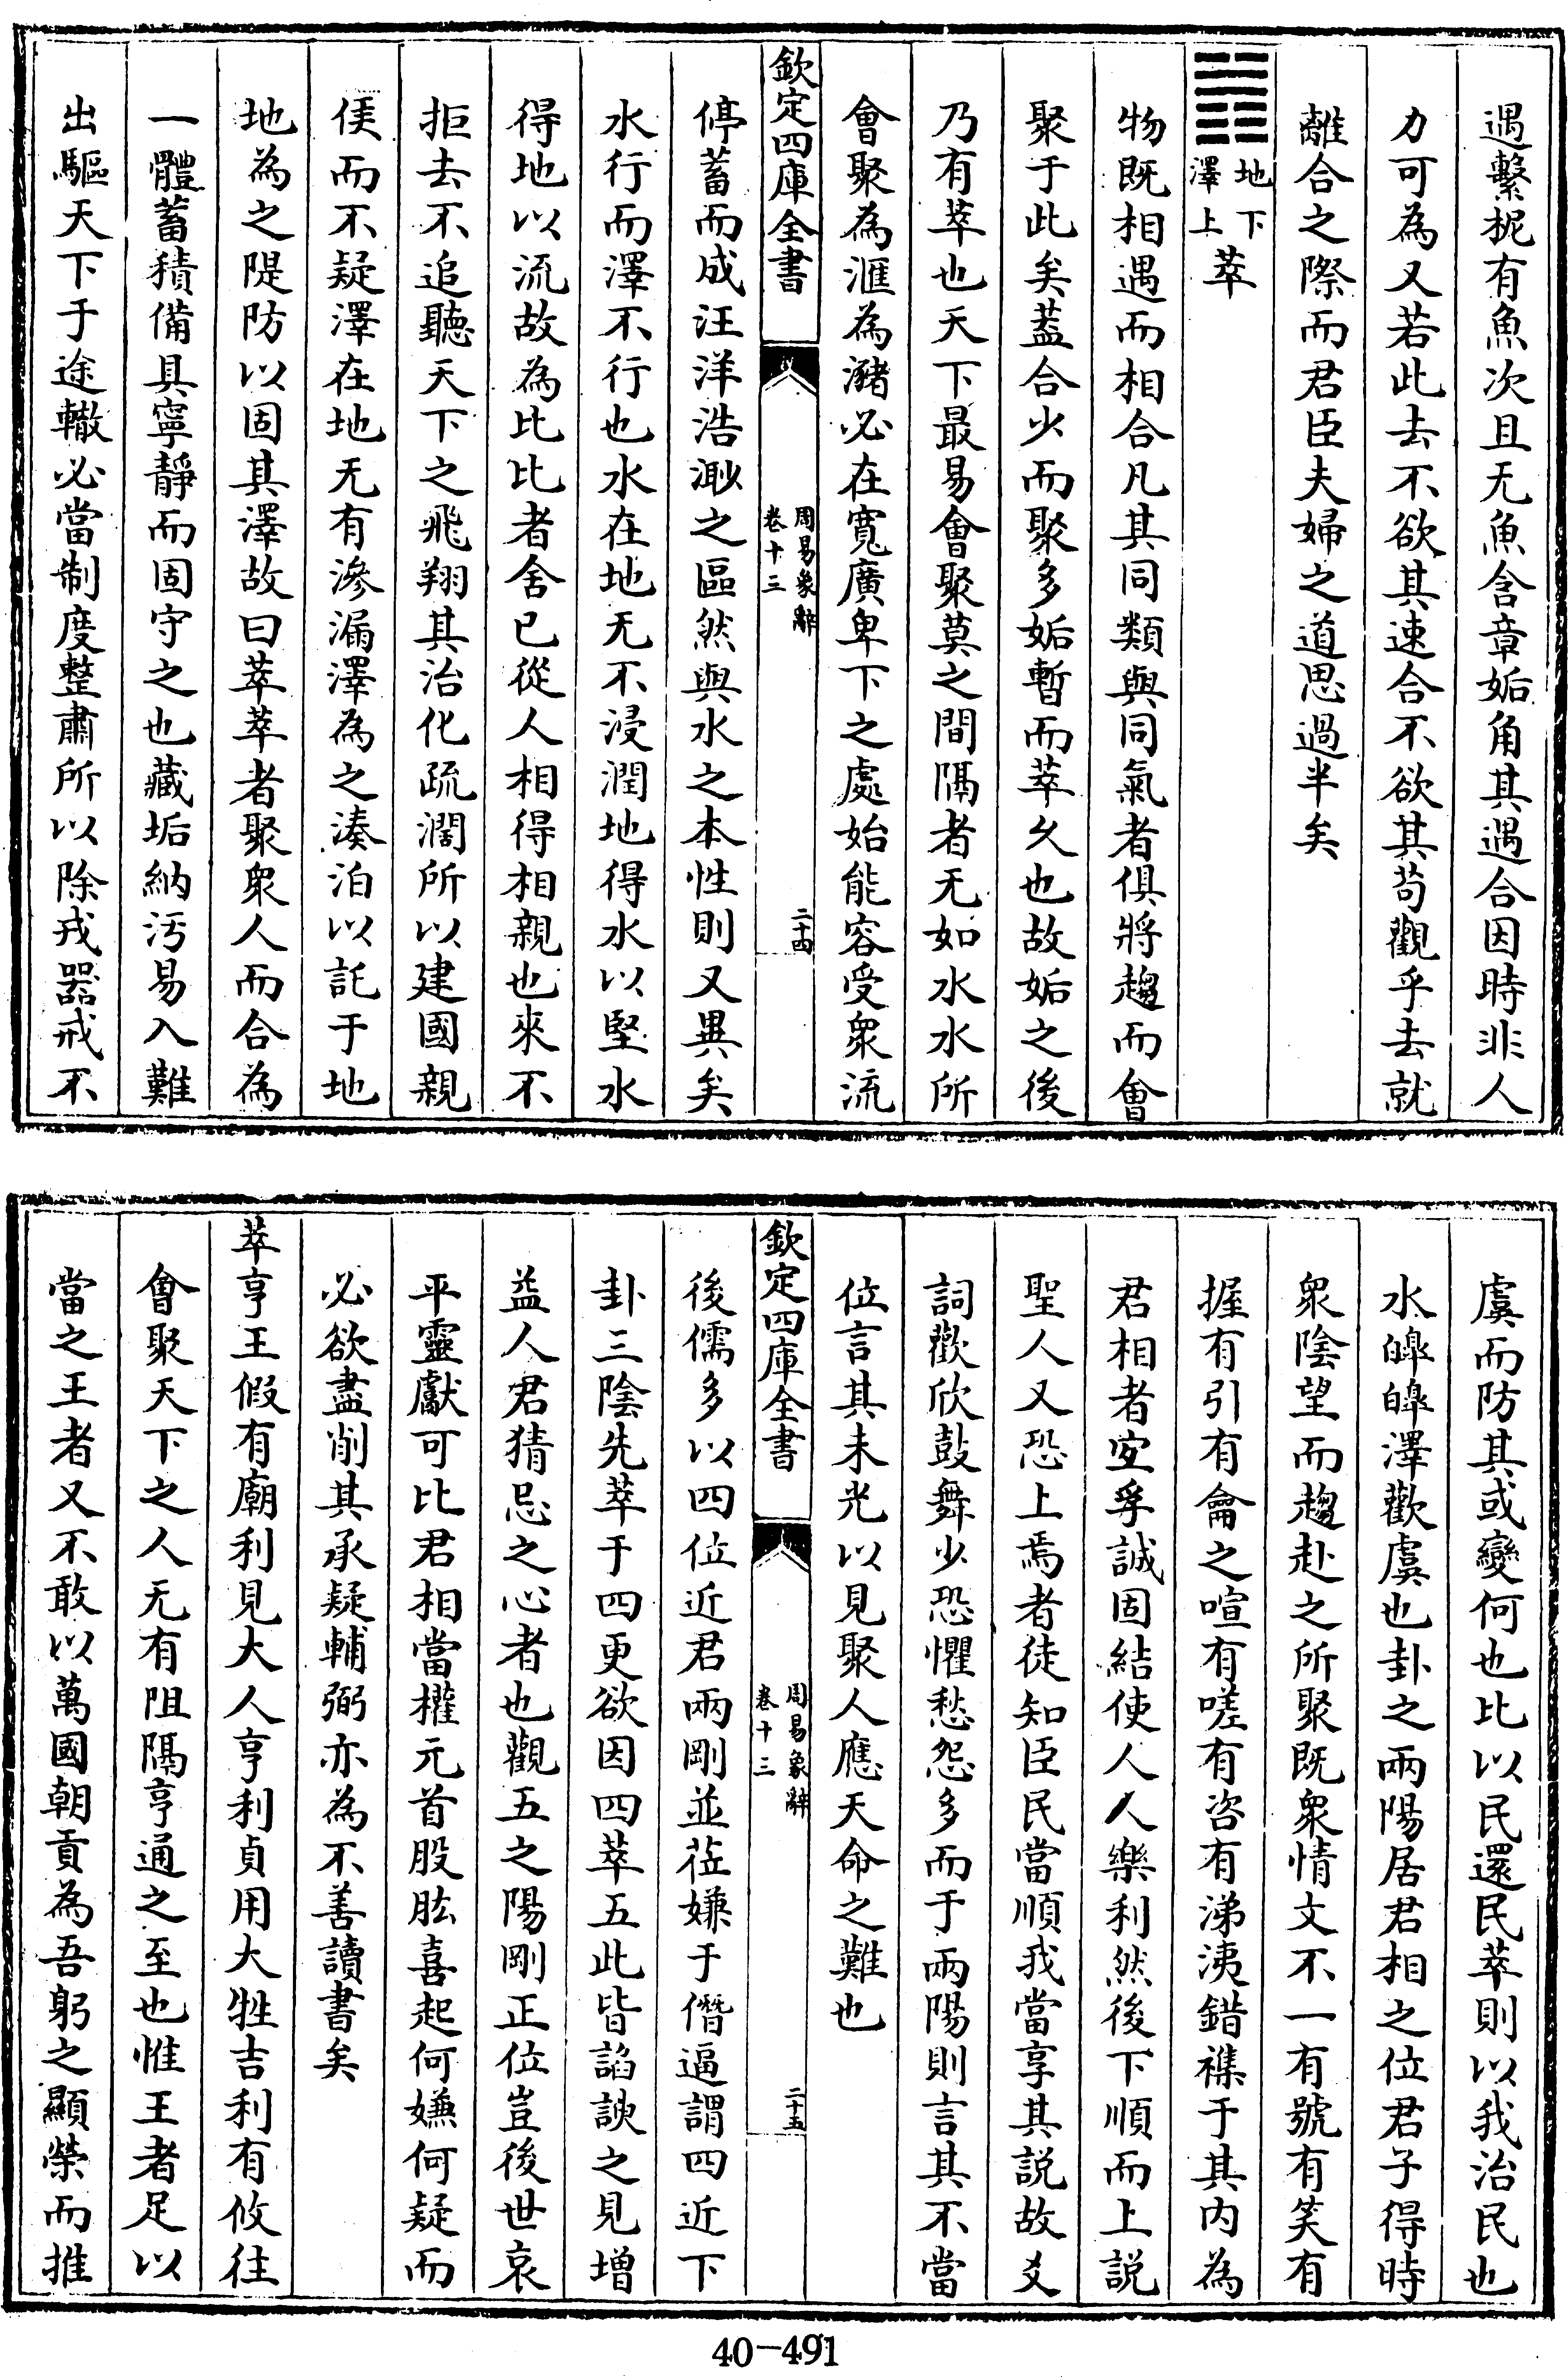 遇繫柅有魚次且无魚含章姤角其遇合因時非人
力可為又若此去不欲其速合不欲其苟觀乎去就
離合之際而君臣夫婦之道思過半矣
䷬地下澤上萃
物既相遇而相合凡其同類與同氣者俱將趨而會
聚于此矣葢合少而聚多姤暫而萃久也故姤之後
乃有萃也天下最易會聚莫之間隔者无如水水所
會聚為滙為瀦必在寬廣卑下之處始能容受衆流
欽定四庫全書
周易象辭
卷十三
二十四
停蓄而成汪洋浩渺之區然與水之本性則又異矣
水行而澤不行也水在地无不浸潤地得水以堅水
得地以流故為比比者舍已從人相得相親也來不
拒去不追聽天下之飛翔其治化疏濶所以建國親
侯而不疑澤在地无有滲漏澤為之湊泊以託于地
地為之隄防以固其澤故曰萃萃者聚衆人而合為
一體蓄積備具寧靜而固守之也藏垢納汚易入難
出驅天下于途轍必當制度整肅所以除戎器戒不
虞而防其或變何也比以民還民萃則以我治民也
水皥皥澤歡虞也卦之兩陽居君相之位君子得時
衆陰望而趨赴之所聚既衆情文不一有號有笑有
握有引有龠之喧有嗟有咨有涕洟錯襍于其内為
君相者宻孚誠固結使人人樂利然後下順而上説
聖人又恐上焉者徒知臣民當順我當享其説故爻
詞歡欣鼓舞少恐懼愁怨多而于兩陽則言其不當
位言其未光以見聚人應天命之難也
欽定四庫全書
周易象辭
卷十三
二十五
後儒多以四位近君兩剛並莅嫌于僭逼謂四近下
卦三陰先萃于四更欲因四萃五此皆諂諛之見增
益人君猜忌之心者也觀五之陽剛正位豈後世哀
平靈獻可比君相當權元首股肱喜起何嫌何疑而
必欲盡削其承疑輔弼亦為不善讀書矣
萃亨王假有廟利見大人亨利貞用大牲吉利有攸往
會聚天下之人无有阻隔亨通之至也惟王者足以
當之王者又不敢以萬國朝貢為吾躬之顯榮而推
40-491